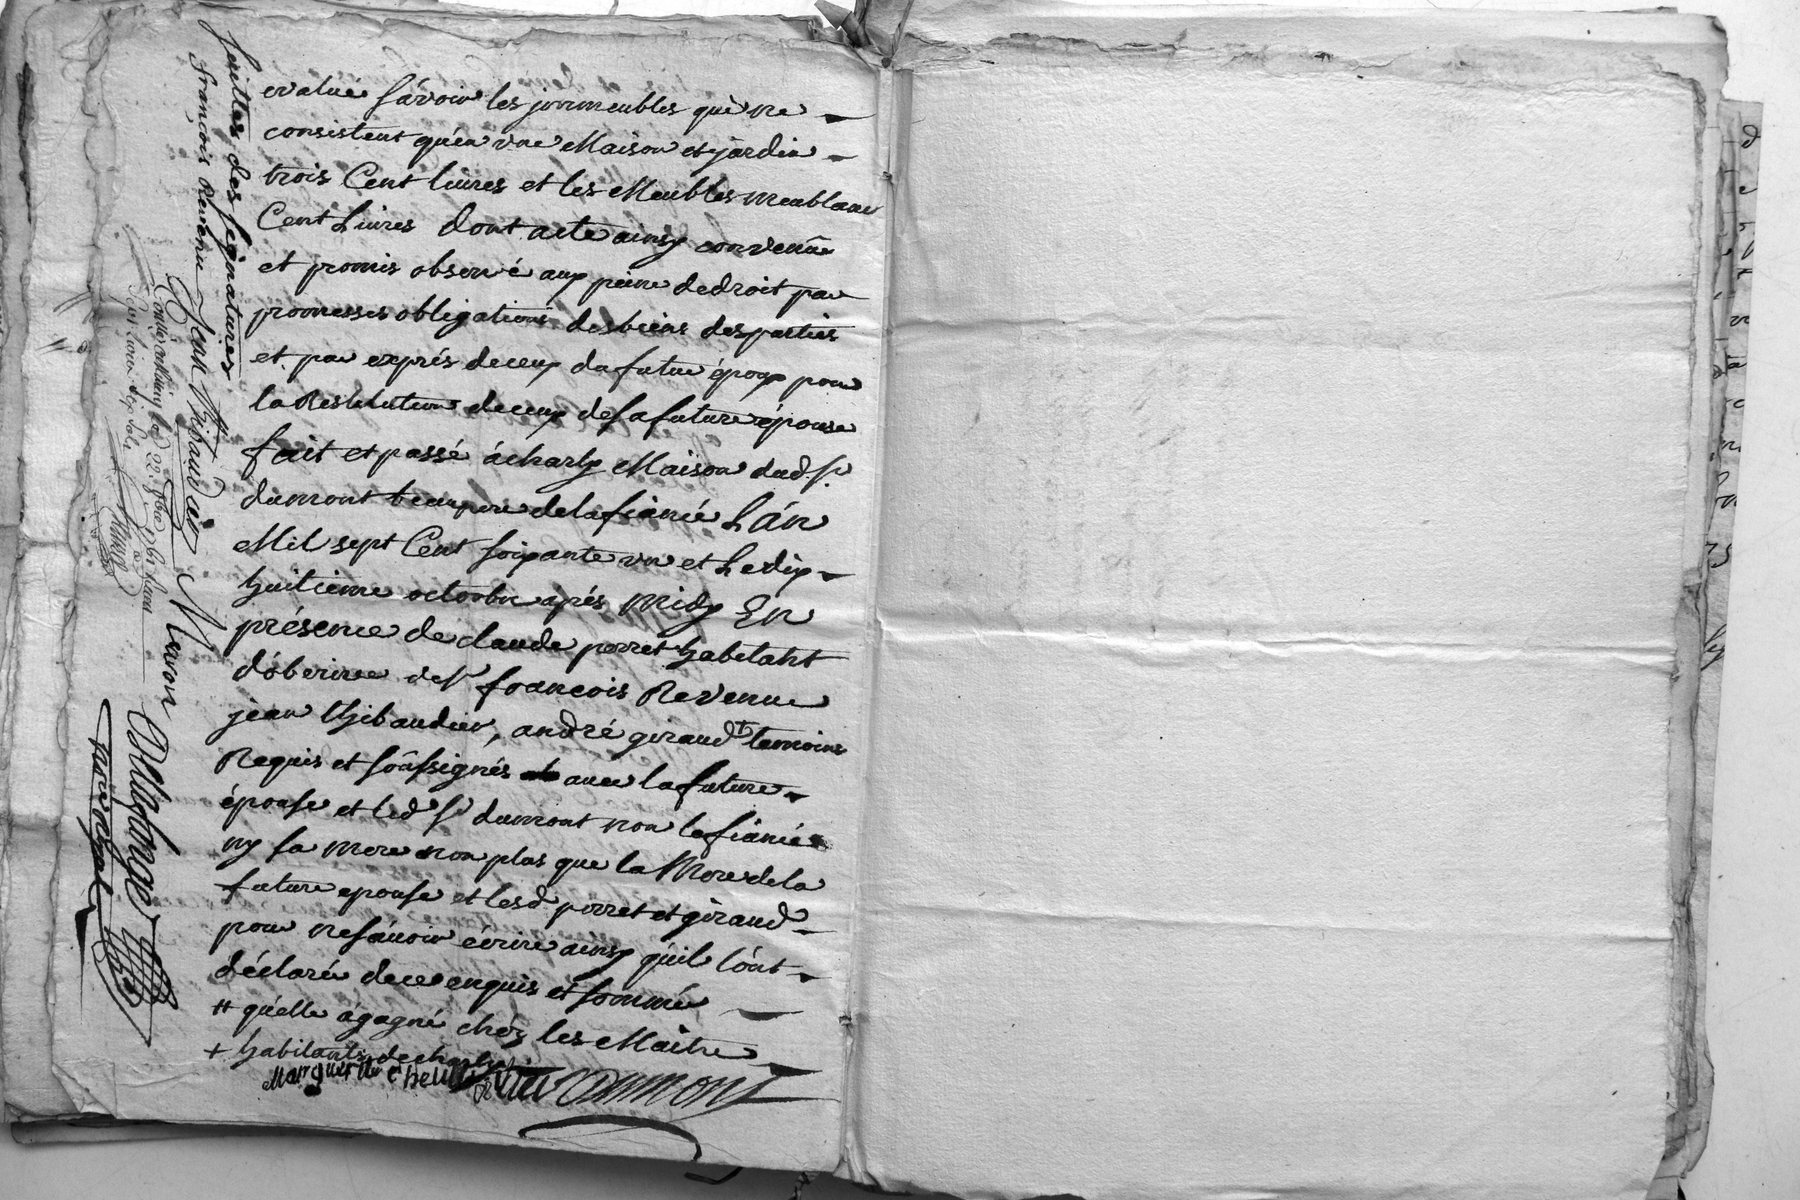 evalué savoir les jmmeubles qui ne
consistent qu'en vne Maison et jardin
trois Cent livres et les Meubles meublans
Cent Livres dont acte ainsy convenu
et promis observé aux peine de droit par
promesses obligations des biens des parties
et par exprés de ceux du futur époux pour
la Restitution de ceux de sa future épouse
fait et passé á charly Maison dud. sr.
dumont beaupere de la fiancée L'án
Mil sept Cent soixante vn et Le dix
huitieme octobre aprés Midy En
présence de claude perret habitant
d'óberive de sr françois Revenu
jean thibaudier, andré giraud + temoins
Requis et soûssignés avec la future
épouse et led. sr dumont non le fiancé
ny sa mere non plus que la Mere de la
future epouse et lesd. perret et giraud
pour ne sávoir écrire ainsy qu'il l'ont
déclaré de ce enquis et sommé
# qu'elle a gagné chéz les Maitre
+ habitants de charly
Marguerite Dumont
suittes des signatures
françois Revenu Jean Thibaudier Navon